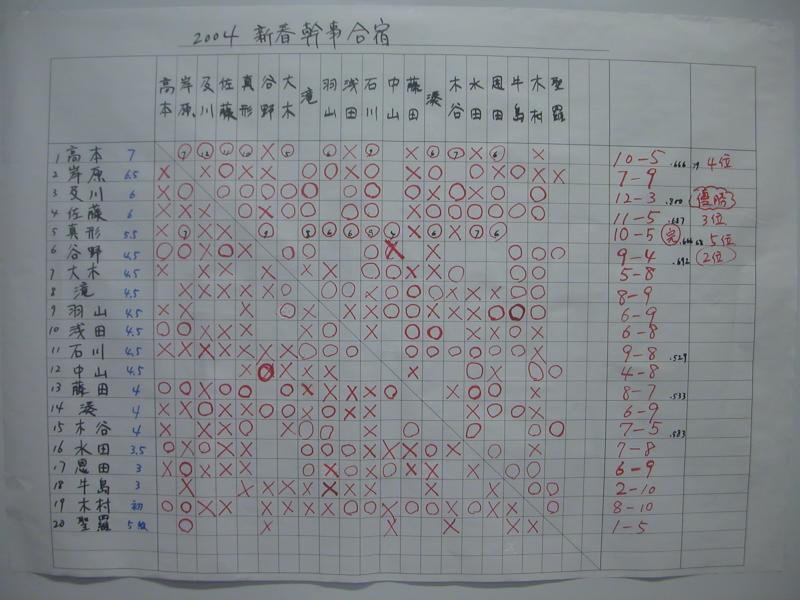 2004 新春幹事合宿
高本 岸原 及川 佐藤 真形 谷野 大木 滝 羽山 浅田 石川 中山 藤田 湊 木谷 水田 恩田 牛島 木村 聖羅
1 高本 7 10-5 .666 4位
2 岸原 6.5 7-9
3 及川 6 12-3 .800 優勝
4 佐藤 6 11-5 .687 3位
5 真形 5.5 10-5 .666 5位
6 谷野 4.5 9-4 .692 2位
7 大木 4.5 5-8
8 滝 4.5 8-9
9 羽山 4.5 6-9
10 浅田 4.5 6-8
11 石川 4.5 9-8 .529
12 中山 4.5 4-8
13 藤田 4 8-7 .533
14 湊 4 6-9
15 木谷 4 7-5 .583
16 水田 3.5 7-8
17 恩田 3 6-9
18 牛島 3 2-10
19 木村 初 8-10
20 聖羅 5級 1-5